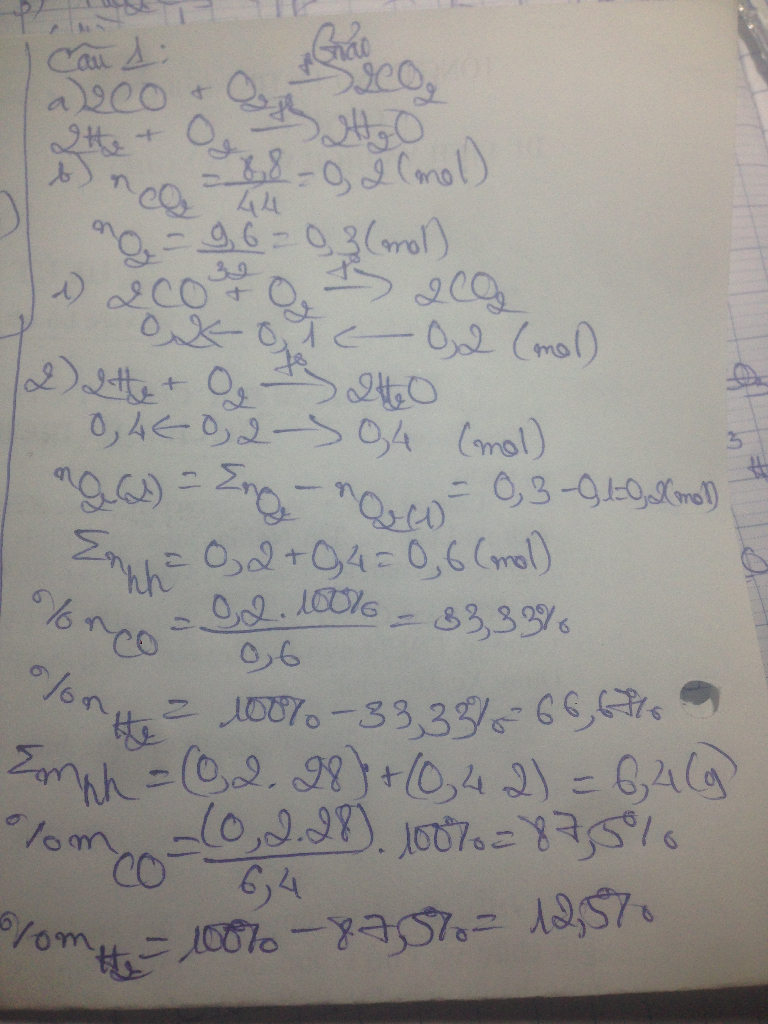 Câu 1:
a) 2CO + O₂ t° → 2CO₂
2H₂ + O₂ t° → 2H₂O
b) nCO₂ = 8,8/44 = 0,2 (mol)
nO₂ = 9,6/32 = 0,3 (mol)
1) 2CO + O₂ t° → 2CO₂
0,2 ← 0,1 ← 0,2 (mol)
2) 2H₂ + O₂ t° → 2H₂O
0,4 ← 0,2 → 0,4 (mol)
nO₂(2) = ΣnO₂ − nO₂(1) = 0,3 − 0,1 = 0,2 (mol)
Σnhh = 0,2 + 0,4 = 0,6 (mol)
%nCO = 0,2 . 100%/0,6 = 33,33%
%nH₂ = 100% − 33,33% = 66,67%
Σmhh = (0,2 . 28) + (0,4 2) = 6,4 (g)
%mCO = (0,2 . 28)/6,4 . 100% = 87,5%
%mH₂ = 100% − 87,5% = 12,5%